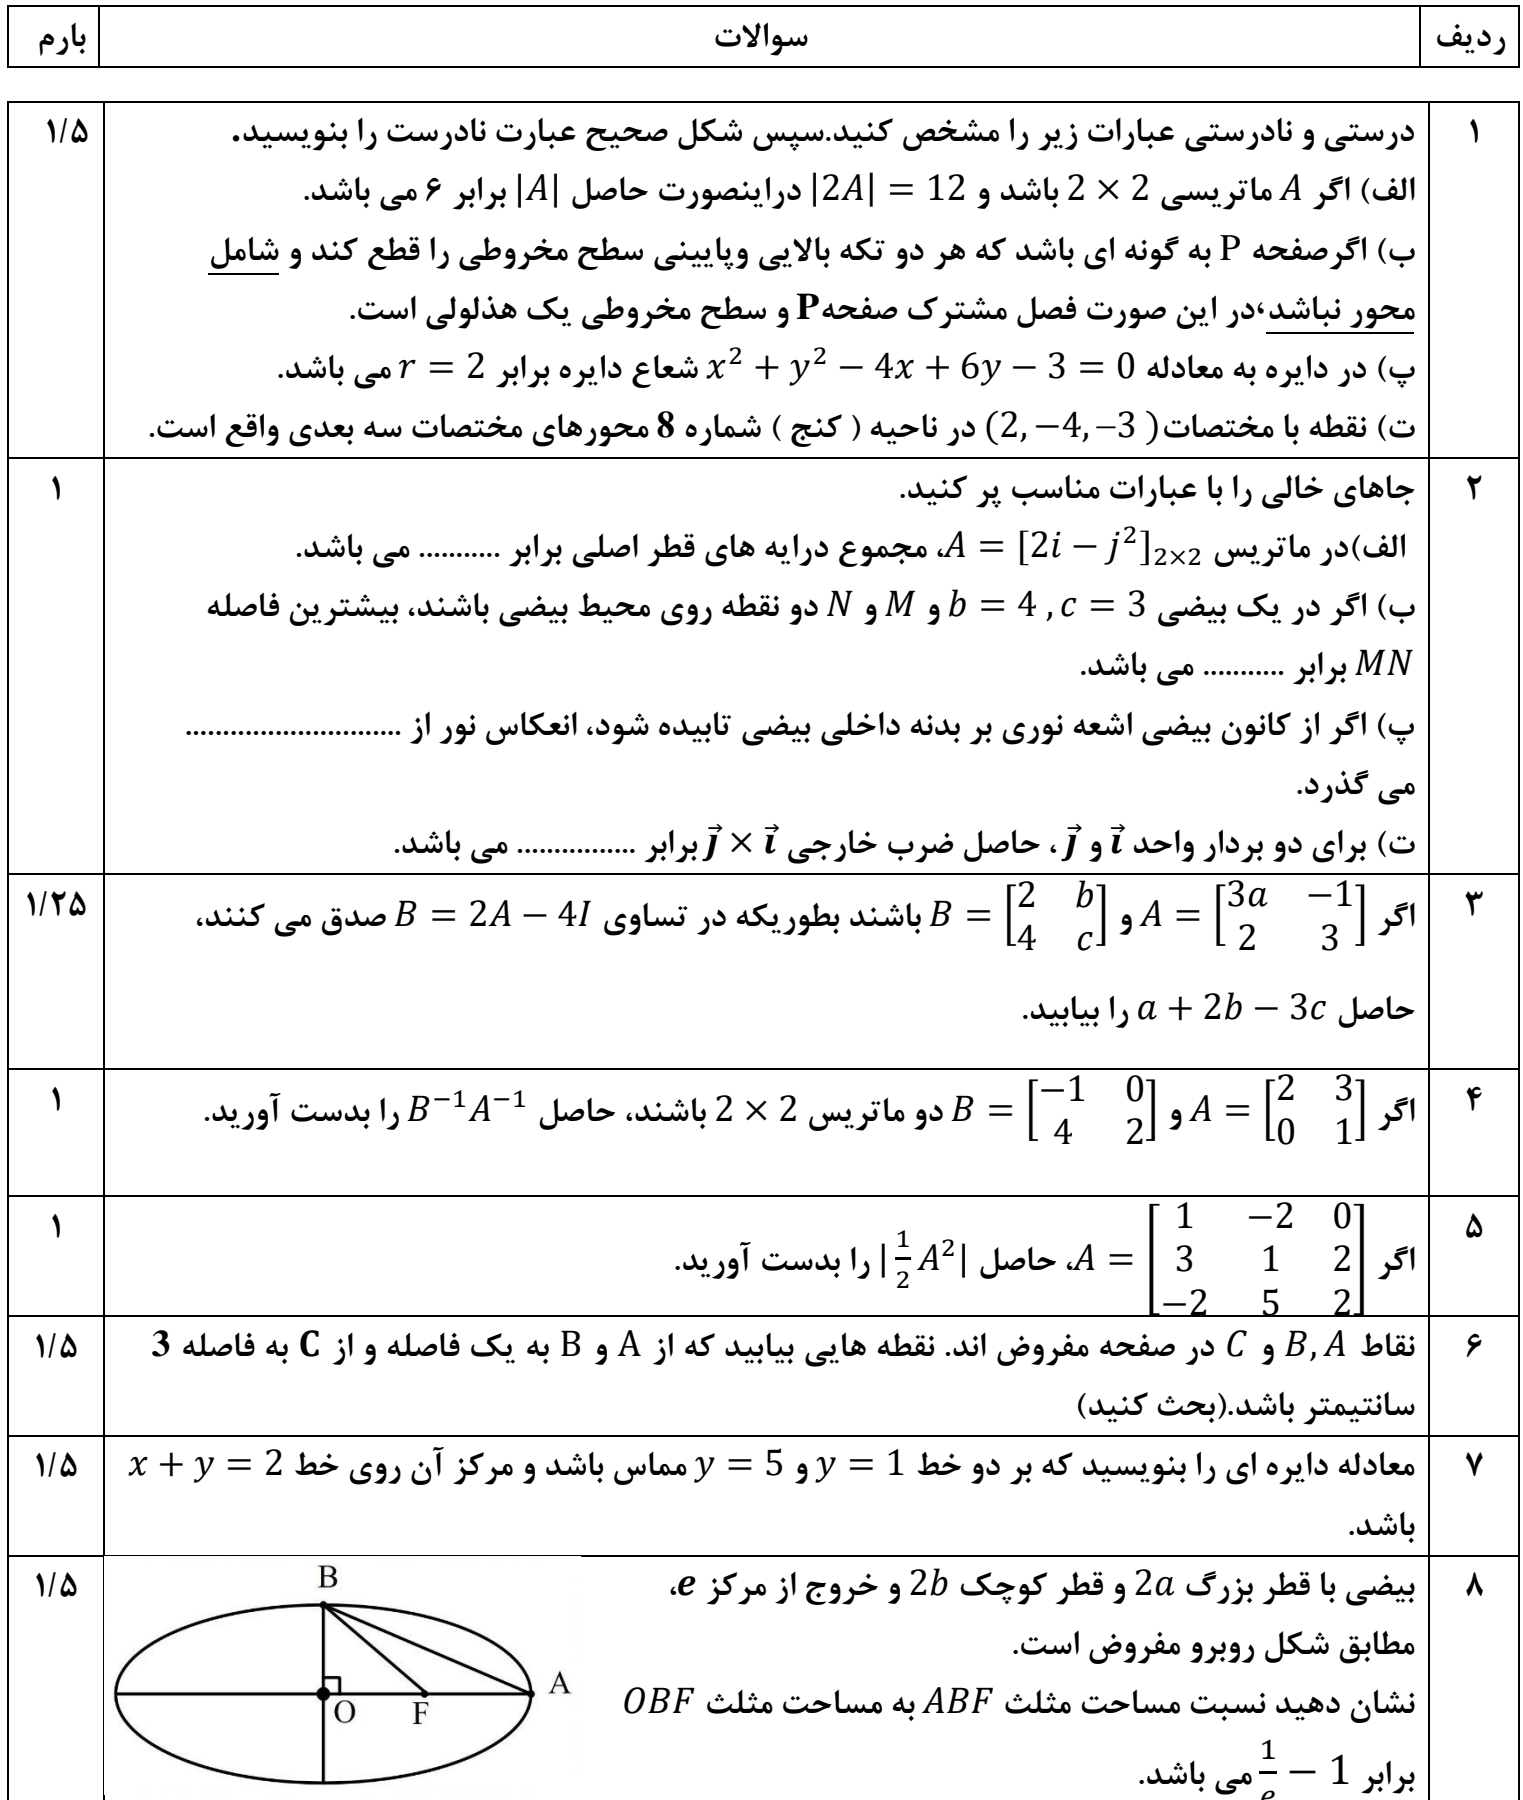 ردیف سوالات بارم
۱ درستی و نادرستی عبارات زیر را مشخص کنید.سپس شکل صحیح عبارت نادرست را بنویسید. ۱/۵
الف) اگر A ماتریسی 2 × 2 باشد و |2A| = 12 دراینصورت حاصل |A| برابر ۶ می باشد.
ب) اگرصفحه P به گونه ای باشد که هر دو تکه بالایی وپایینی سطح مخروطی را قطع کند و شامل
محور نباشد،در این صورت فصل مشترک صفحهP و سطح مخروطی یک هذلولی است.
پ) در دایره به معادله x² + y² − 4x + 6y − 3 = 0 شعاع دایره برابر r = 2 می باشد.
ت) نقطه با مختصات (2, −4, −3) در ناحیه ( کنج ) شماره 8 محورهای مختصات سه بعدی واقع است.
۲ جاهای خالی را با عبارات مناسب پر کنید. ۱
الف)در ماتریس A = [2i − j²]₂ₓ₂، مجموع درایه های قطر اصلی برابر ........... می باشد.
ب) اگر در یک بیضی b = 4 , c = 3 و M و N دو نقطه روی محیط بیضی باشند، بیشترین فاصله
MN برابر ........... می باشد.
پ) اگر از کانون بیضی اشعه نوری بر بدنه داخلی بیضی تابیده شود، انعکاس نور از .............................
می گذرد.
ت) برای دو بردار واحد i⃗ و j⃗ ، حاصل ضرب خارجی j⃗ × i⃗ برابر ............... می باشد.
۳ اگر A = [3a −1; 2 3] و B = [2 b; 4 c] باشند بطوریکه در تساوی B = 2A − 4I صدق می کنند، ۱/۲۵
حاصل a + 2b − 3c را بیابید.
۴ اگر A = [2 3; 0 1] و B = [−1 0; 4 2] دو ماتریس 2 × 2 باشند، حاصل B⁻¹A⁻¹ را بدست آورید. ۱
۵ اگر A = [1 −2 0; 3 1 2; −2 5 2]، حاصل |½ A²| را بدست آورید. ۱
۶ نقاط B, A و C در صفحه مفروض اند. نقطه هایی بیابید که از A و B به یک فاصله و از C به فاصله 3 ۱/۵
سانتیمتر باشد.(بحث کنید)
۷ معادله دایره ای را بنویسید که بر دو خط y = 1 و y = 5 مماس باشد و مرکز آن روی خط x + y = 2 ۱/۵
باشد.
۸ بیضی با قطر بزرگ 2a و قطر کوچک 2b و خروج از مرکز e، ۱/۵
مطابق شکل روبرو مفروض است.
نشان دهید نسبت مساحت مثلث ABF به مساحت مثلث OBF
برابر 1/e − 1 می باشد.
B
A
O
F